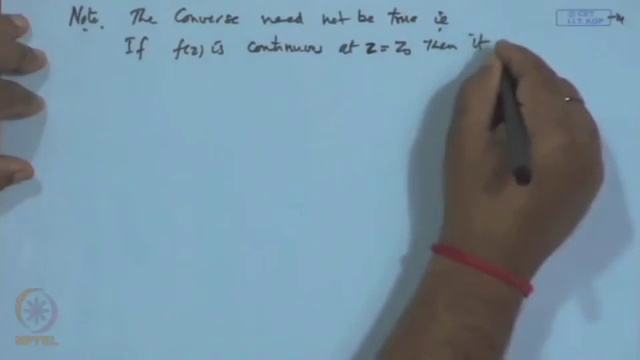 Note. The Converse need not be true ie
© CET
I.I.T. KGP
If f(z) is continuous at z = z₀ then it
NPTEL